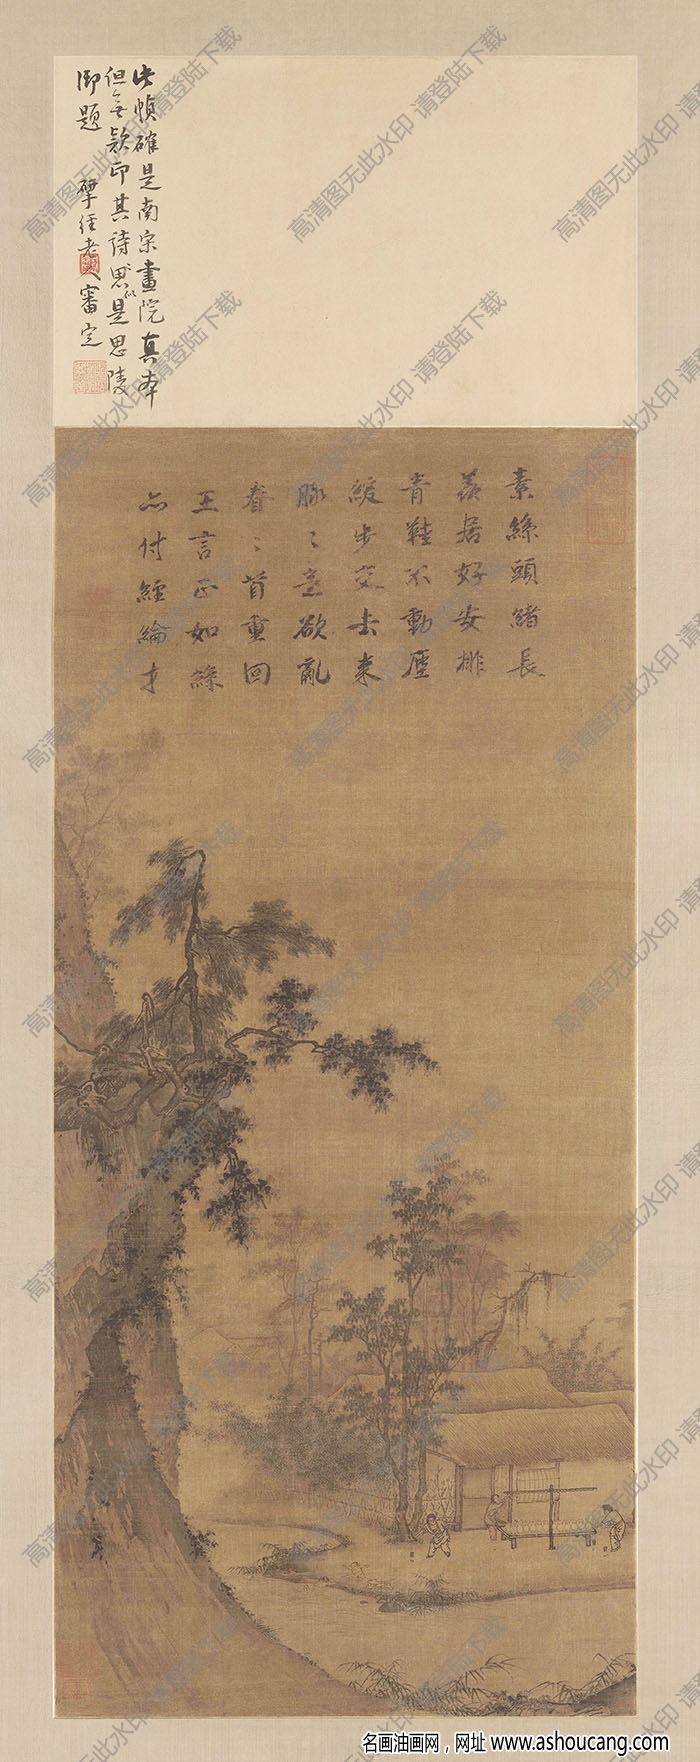 此幀確是南宋畫院真本
但無欵印其詩思似是思陵
御題
揅經老人審定
素絲頭緒長
羨居好安排
青鞋不動塵
緩步交去來
脉〻意欲亂
眷〻首重回
王言正如絲
亦付經綸才
高清图无此水印 请登陆下载
名画油画网，网址 www.ashoucang.com